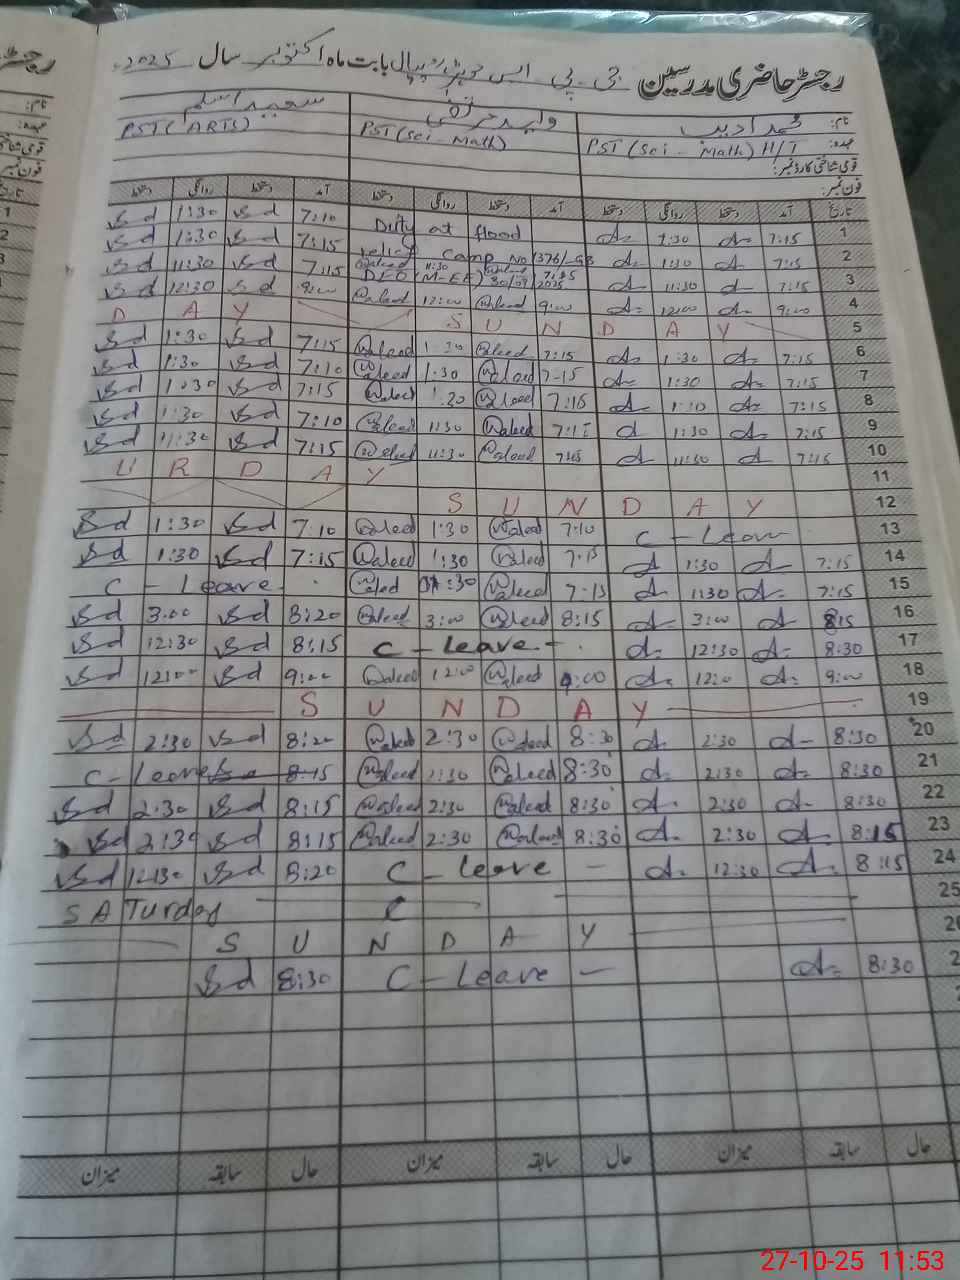 رجسٹر حاضری مدرسین جی پی ایس بابت ماہ اکتوبر سال 2025ء
نام: محمد ادیب ولید مرتضی سعید اسلم
عہدہ: PST (Sci - Math) H/T PST (Sci - Math) PST (ARTS)
قومی شناختی کارڈ نمبر:
فون نمبر:
تاریخ آمد دستخط روانگی دستخط آمد دستخط روانگی دستخط آمد دستخط روانگی دستخط
Sd 1:30 Sd 7:10 Duty at flood A 1:30 A 7:15 1
Sd 1:30 Sd 7:15 relief Camp No 376/GB A 1:30 A 7:15 2
Sd 11:30 Sd 7:15 Waleed 11:30 Waleed 7:15 DEO (M-EE) 30/09/2025 A 11:30 A 7:15 3
Sd 12:30 Sd 9:00 Waleed 12:00 Waleed 9:00 A 12:00 A 9:00 4
D A Y S U N D A Y 5
Sd 1:30 Sd 7:15 Waleed 1:30 Waleed 7:15 A 1:30 A 7:15 6
Sd 1:30 Sd 7:10 Waleed 1:30 Waleed 7-15 A 1:30 A 7:15 7
Sd 1:30 Sd 7:15 Waleed 1:30 Waleed 7:15 A 1:30 A 7:15 8
Sd 1:30 Sd 7:10 Waleed 11:30 Waleed 7:15 A 11:30 A 7:15 9
Sd 11:30 Sd 7:15 Waleed 11:30 Waleed 7:15 A 11:30 A 7:15 10
U R D A Y 11
S U N D A Y 12
Sd 1:30 Sd 7:10 Waleed 1:30 Waleed 7:10 C - Leave 13
Sd 1:30 Sd 7:15 Waleed 1:30 Waleed 7:15 A 1:30 A 7:15 14
C - Leave - Waleed 01:30 Waleed 7:15 A 1:30 A 7:15 15
Sd 3:00 Sd 8:20 Waleed 3:00 Waleed 8:15 A 3:00 A 8:15 16
Sd 12:30 Sd 8:15 C - leave - A 12:30 A 8:30 17
Sd 12:00 Sd 9:00 Waleed 12:00 Waleed 9:00 A 12:0 A 9:00 18
S U N D A Y 19
Sd 2:30 Sd 8:20 Waleed 2:30 Waleed 8:30 A 2:30 A 8:30 20
C - Leave Sd 8:15 Waleed 2:30 Waleed 8:30 A 2:30 A 8:30 21
Sd 2:30 Sd 8:15 Waleed 2:30 Waleed 8:30 A 2:30 A 8:30 22
Sd 2:30 Sd 8:15 Waleed 2:30 Waleed 8:30 A 2:30 A 8:15 23
Sd 12:30 Sd 8:20 C - leave - A 12:30 A 8:15 24
SATurday C 25
S U N D A Y 26
Sd 8:30 C - Leave - A 8:30 2
حال سابقہ میزان حال سابقہ میزان حال سابقہ میزان
27-10-25 11:53